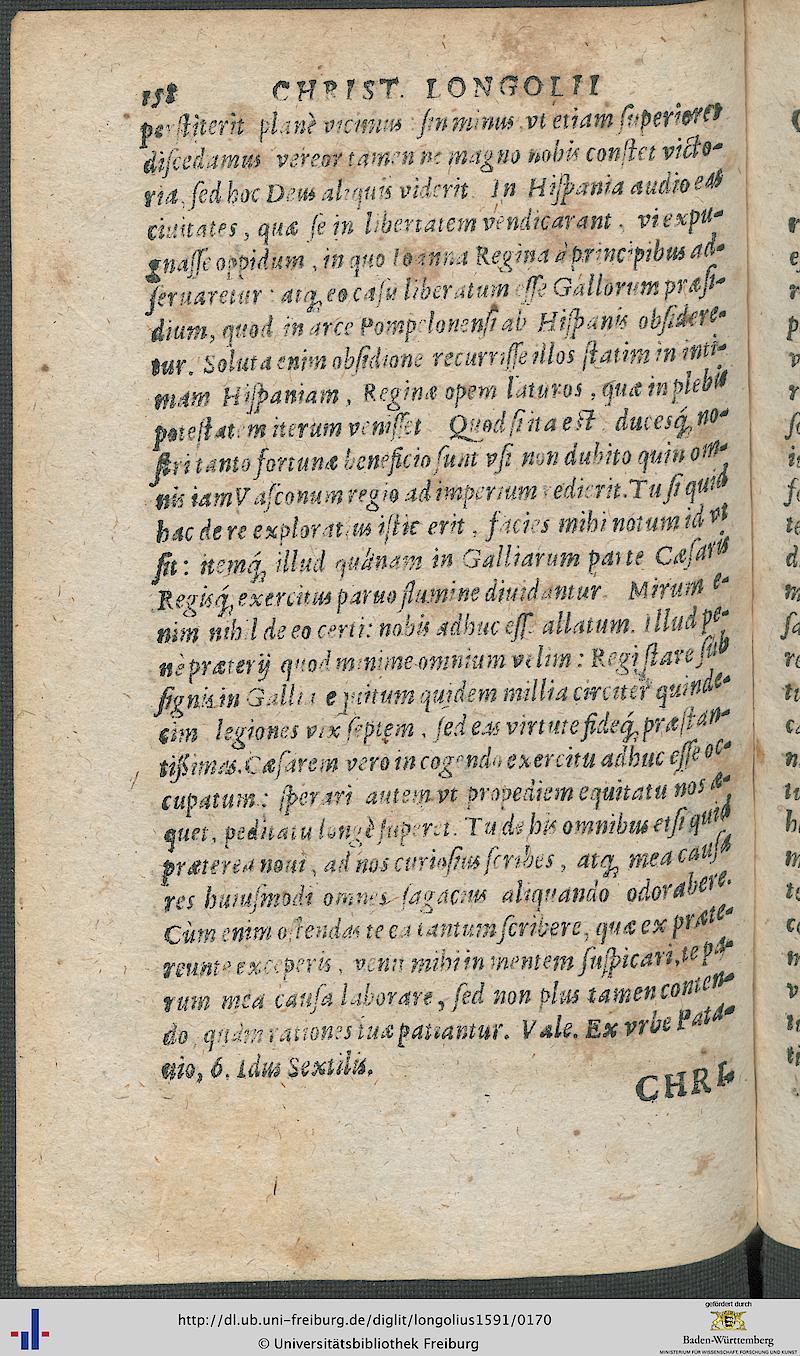 158 CHRIST. LONGOLII
perstiterit planè vicimus sin minus vt etiam superiores
discedamus vereor tamen ne magno nobis constet victo-
ria, sed hoc Deus aliquis viderit. In Hispania audio eas
ciuitates, quæ se in libertatem vendicarant, vi expu-
gnasse oppidum, in quo Ioanna Regina à principibus ad-
seruaretur: atq́ eo casu liberatum esse Gallorum præsi-
dium, quod in arce Pompelonensi ab Hispanis obsidere-
tur. Soluta enim obsidione recurrisse illos statim in inti-
mam Hispaniam, Reginæ opem laturos, quæ in plebis
potestatem iterum venisset. Quod si ita est ducesq́ no-
stri tanto fortunæ beneficio sunt vsi non dubito quin om-
nis iam Vasconum regio ad imperium redierit. Tu si quid
hac de re exploratius istic erit, facies mihi notum id vt
sit: itemq́ illud quànam in Galliarum parte Cæsaris
Regisq́ exercitus paruo flumine diuidantur. Mirum e-
nim nihil de eo certi: nobis adhuc esse allatum. Illud pe-
nè præterij quod minime omnium velim: Regi stare sub
signis in Gallia equitum quidem millia circiter quinde-
cim legiones vix septem, sed eas virtute fideq́ præstan-
tißimas. Cæsarem vero in cogendo exercitu adhuc esse oc-
cupatum: sperari autem vt propediem equitatu nos æ-
quet, peditatu longè superet. Tu de his omnibus etsi quid
præterea noui, ad nos curiosius scribes, atq́ mea causa
res huiusmodi omnes sagacius aliquando odorabere.
Cùm enim ostendas te ea tantum scribere, quæ ex præte-
reunte exceperis, venit mihi in mentem suspicari, te pa-
rum mea causa laborare, sed non plus tamen conten-
do, quàm rationes tuæ patiantur. Vale. Ex vrbe Pata-
uio, 6. Idus Sextilis.
CHRI-
http://dl.ub.uni-freiburg.de/diglit/longolius1591/0170
© Universitätsbibliothek Freiburg
gefördert durch
Baden-Württemberg
MINISTERIUM FÜR WISSENSCHAFT, FORSCHUNG UND KUNST